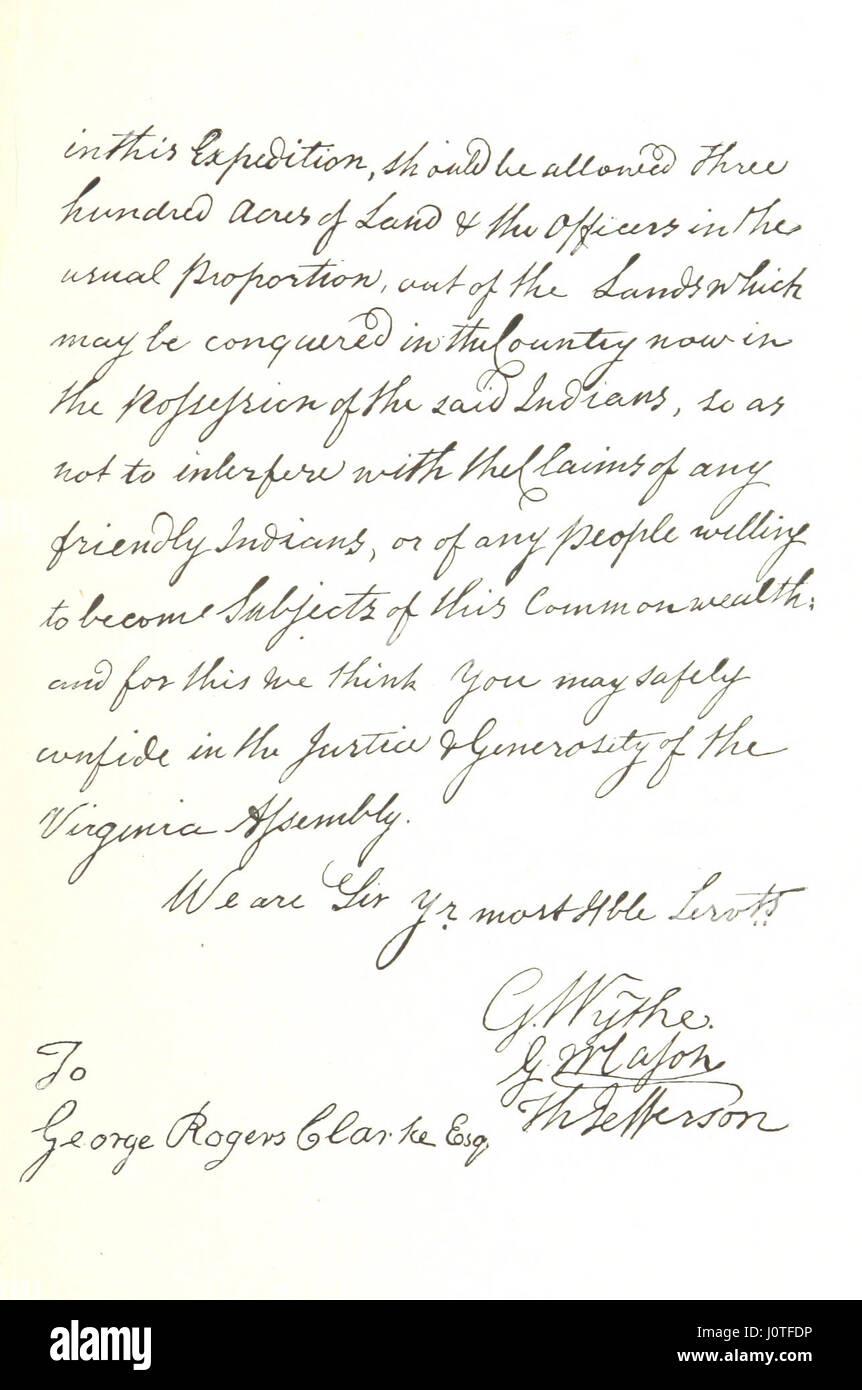 in this Expedition, should be allowed three
hundred Acres of Land & the Officers in the
usual Proportion, out of the Lands which
may be conquered in the Country now in
the Possession of the said Indians, so as
not to interfere with the Claims of any
friendly Indians, or of any People willing
to become Subjects of this Commonwealth:
and for this we think You may safely
confide in the Justice & Generosity of the
Virginia Assembly.
We are Sir Yr. most Hble Servts
G. Wythe.
G Mason
Th Jefferson
To
George Rogers Clarke Esq.
alamy
Image ID: J0TFDP
www.alamy.com